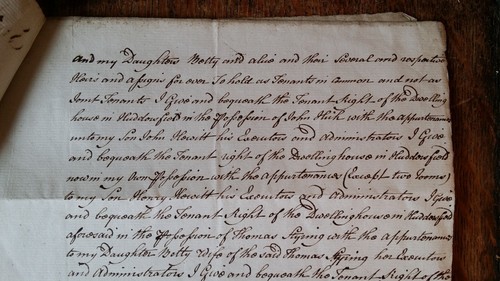 and my Daughters Betty and alice and their Several and respective
Heirs and assigns for ever To hold as Tenants in common and not as
Joint Tenants I Give and bequeath the Tenant Right of the Dwelling
house in Huddersfield in the Possession of John Hirst with the Appurtenances
unto my Son John Hewitt his Executors and Administrators I Give
and bequeath the Tenant right of the Dwellinghouse in Huddersfield
now in my Own Possession with the appurtenances (Except two rooms)
to my Son Henry Hewitt his Executors and Administrators I Give
and bequeath the Tenant Right of the Dwellinghouse in Huddersfield
aforesaid in the Possession of Thomas Styring with the appurtenances
to my Daughter Betty Wife of the said Thomas Styring her Executors
and Administrators I Give and bequeath the Tenant Right of the